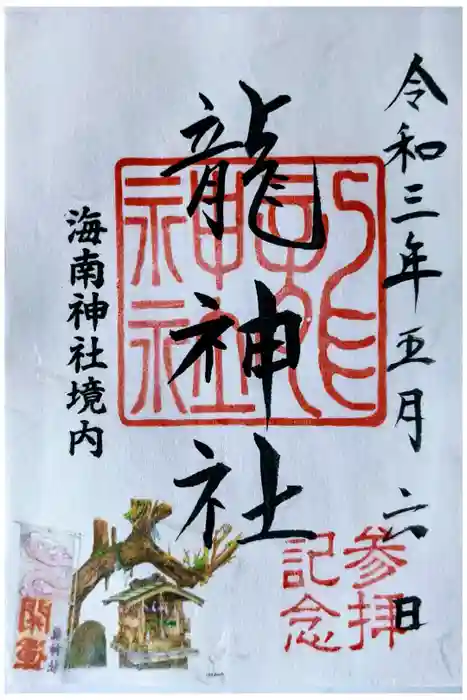 令和三年五月六日
龍神社
海南神社境内
参拝
記念
開運
龍神社